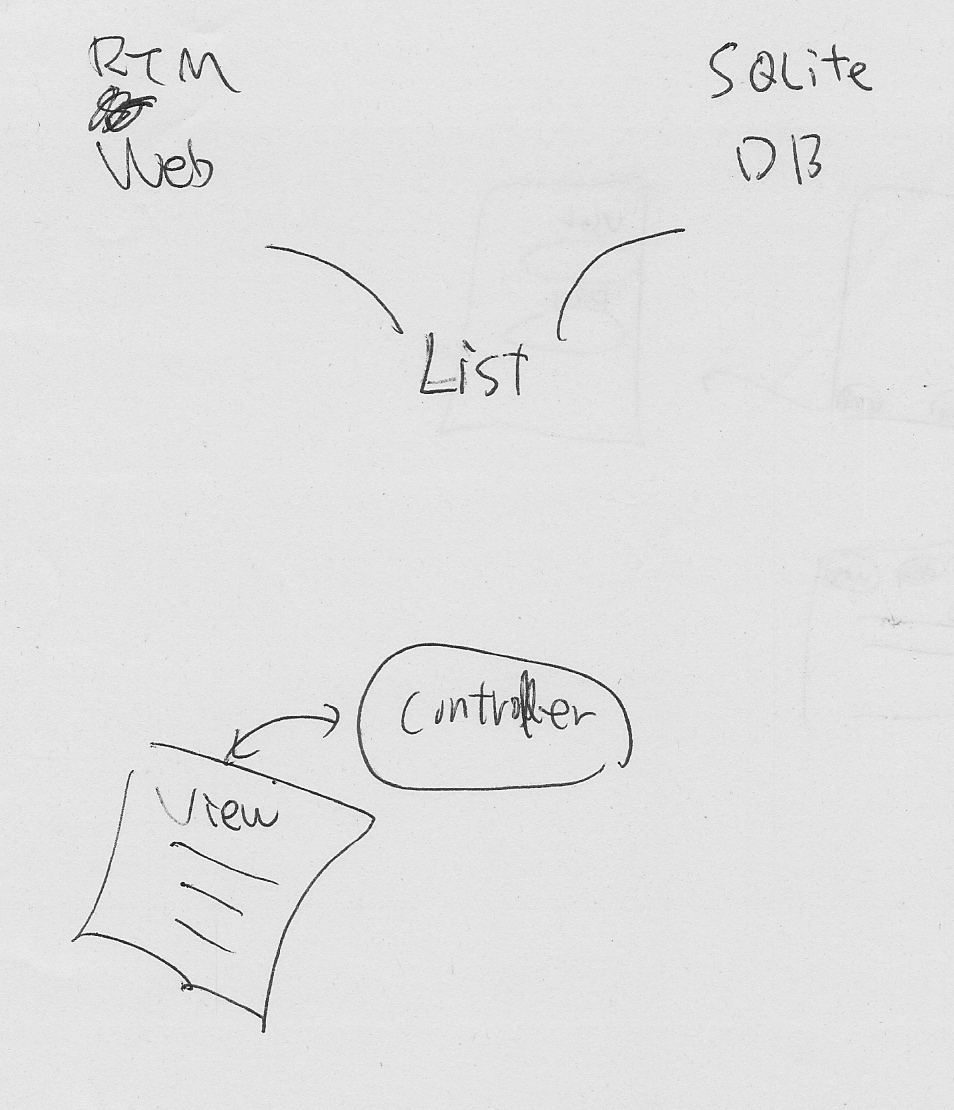 RTM
Web
SQLite
DB
List
Controller
View